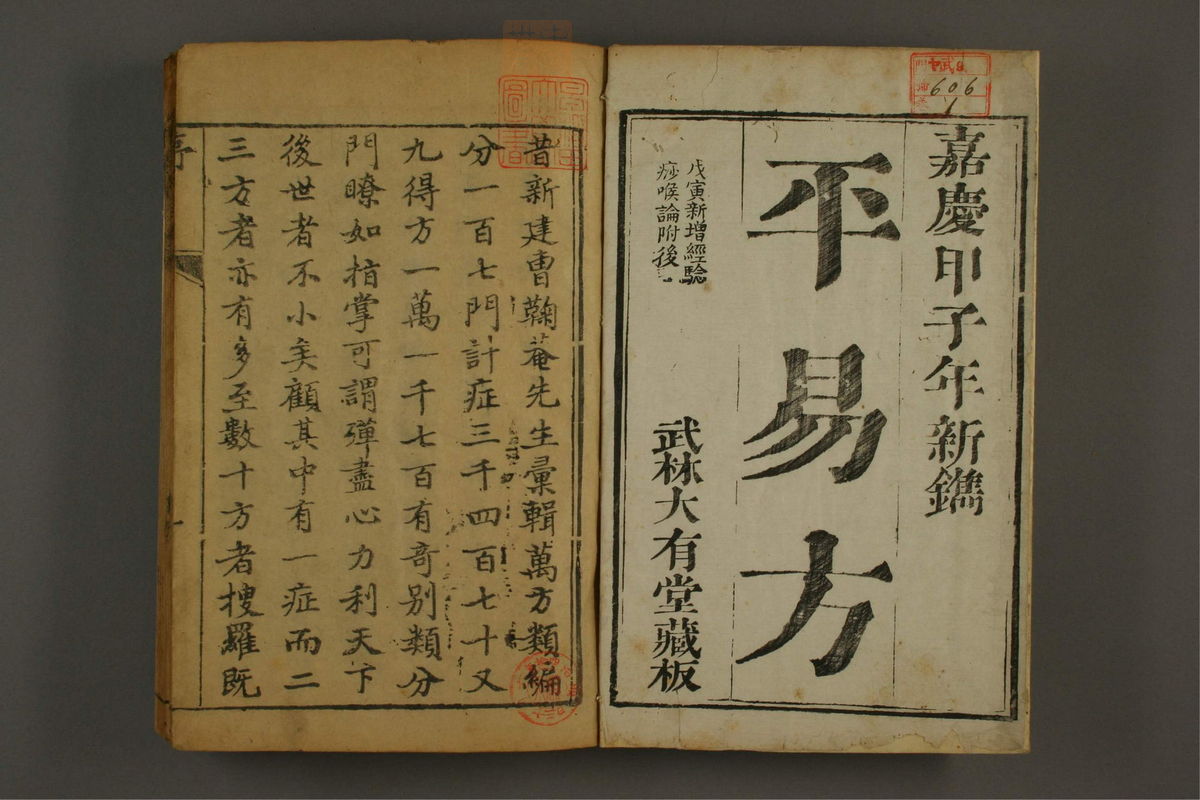 嘉慶甲子年新鐫
平易方
戊寅新增經驗
痧喉論附後
武林大有堂藏板
606
1
昔新建曹鞠菴先生彙輯萬方類編
分一百七門計症三千四百七十又
九得方一萬一千七百有奇別類分
門瞭如指掌可謂殫盡心力利天下
後世者不小矣顧其中有一症而二
三方者亦有多至數十方者搜羅既
序
一